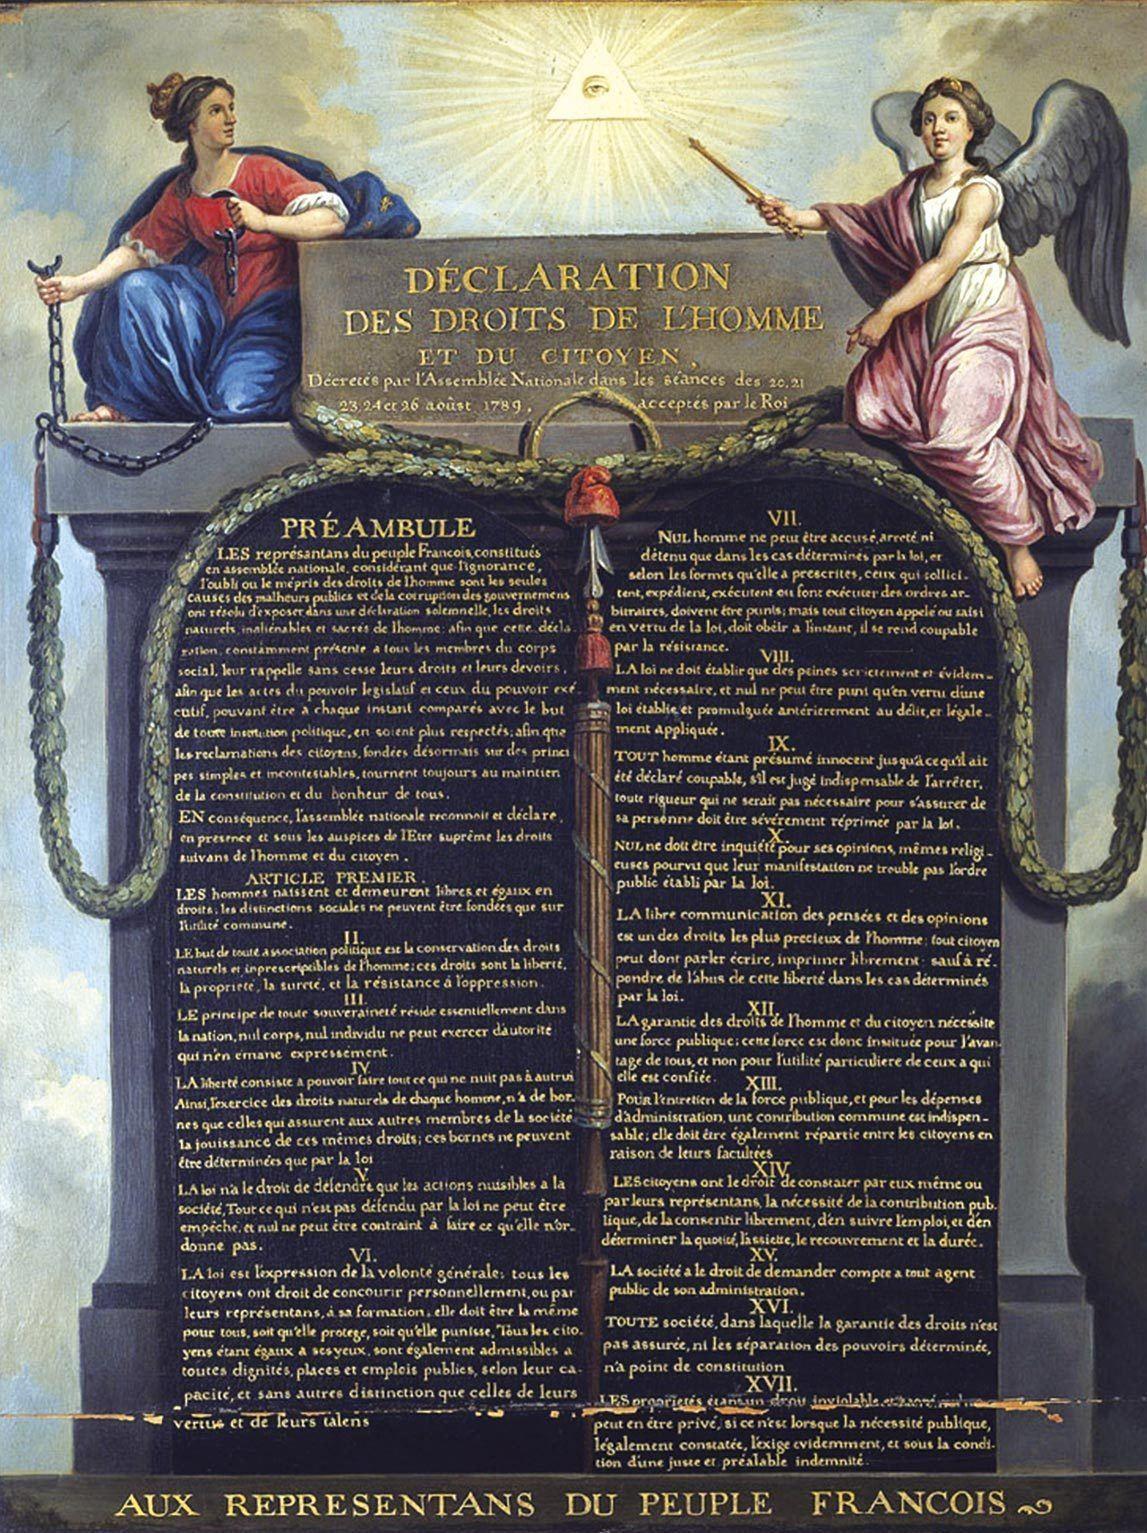 DÉCLARATION
DES DROITS DE L'HOMME
ET DU CITOYEN,
Décretés par l'Assemblée Nationale dans les séances des 20, 21
23, 24 et 26 août 1789, acceptés par le Roi
PRÉAMBULE
LES représantans du peuple Francois, constitués
en assemblée nationale, considérant que l'ignorance,
l'oubli ou le mépris des droits de l'homme sont les seules
causes des malheurs publics et de la corruption des gouvernemens
ont résolu d'exposer dans une déclaration solemnelle, les droits
naturels, inaliénables et sacrés de l'homme; afin que cette décla
ration, constamment présente a tous les membres du corps
social, leur rappelle sans cesse leurs droits et leurs devoirs,
afin que les actes du pouvoir legislatif et ceux du pouvoir exé
cutif, pouvant être a chaque instant comparés avec le but
de toute institution politique, en soient plus respectés; afin que
les reclamations des citoyens, fondées désormais sur des princi
pes simples et incontestables, tournent toujours au maintien
de la constitution et du bonheur de tous.
EN conséquence, l'assemblée nationale reconnoit et déclare,
en presence et sous les auspices de l'Etre suprême les droits
suivans de l'homme et du citoyen.
ARTICLE PREMIER.
LES hommes naissent et demeurent libres et égaux en
droits; les distinctions sociales ne peuvent être fondées que sur
l'utilité commune.
II.
LE but de toute association politique est la conservation des droits
naturels et inprescriptibles de l'homme; ces droits sont la liberté,
la propriété, la sureté, et la résistance à l'oppression.
III.
LE principe de toute souveraineté réside essentiellement dans
la nation, nul corps, nul individu ne peut exercer d'autorité
qui n'en émane expressément.
IV.
LA liberté consiste a pouvoir faire tout ce qui ne nuit pas à autrui
Ainsi, l'exercice des droits naturels de chaque homme, n'a de bor-
nes que celles qui assurent aux autres membres de la société
la jouissance de ces mêmes droits; ces bornes ne peuvent
être déterminées que par la loi
V.
LA loi n'a le droit de défendre que les actions nuisibles a la
société, Tout ce qui n'est pas défendu par la loi ne peut être
empêché, et nul ne peut être contraint à faire ce qu'elle n'or-
donne pas.
VI.
LA loi est l'expression de la volonté générale; tous les
citoyens ont droit de concourir personnellement, ou par
leurs représentans, à sa formation; elle doit être la même
pour tous, soit qu'elle protege, soit qu'elle punisse, Tous les cito-
yens étant égaux a ses yeux, sont également admissibles a
toutes dignités, places et emplois publics, selon leur ca-
pacité, et sans autres distinction que celles de leurs
vertus et de leurs talens
VII.
NUL homme ne peut être accusé, arreté ni
détenu que dans les cas déterminés par la loi, et
selon les formes qu'elle a prescrites, ceux qui sollici-
tent, expédient, exécutent ou font exécuter des ordres ar-
bitraires, doivent être punis; mais tout citoyen appelé ou saisi
en vertu de la loi, doit obéir a l'instant, il se rend coupable
par la résistance.
VIII.
LA loi ne doit établir que des peines strictement et évidem-
ment nécessaire, et nul ne peut être puni qu'en vertu d'une
loi établie et promulguée antérierement au délit, et légale-
ment appliquée.
IX.
TOUT homme étant présumé innocent jusqu'a ce qu'il ait
été déclaré coupable, s'il est jugé indispensable de l'arrêter,
toute rigueur qui ne serait pas nécessaire pour s'assurer de
sa personne doit être sévérement réprimée par la loi.
X.
NUL ne doit être inquiété pour ses opinions, mêmes religi-
euses pourvu que leur manifestation ne trouble pas l'ordre
public établi par la loi.
XI.
LA libre communication des pensées et des opinions
est un des droits les plus precieux de l'homme; tout citoyen
peut dont parler écrire, imprimer librement: sauf à ré-
pondre de l'abus de cette liberté dans les cas déterminés
par la loi.
XII.
LA garantie des droits de l'homme et du citoyen nécessite
une force publique; cette force est donc instituée pour l'avan
tage de tous, et non pour l'utilité particuliere de ceux a qui
elle est confiée.
XIII.
POUR l'entretien de la force publique, et pour les dépenses
d'administration, une contribution commune est indispen-
sable; elle doit être également répartie entre les citoyens en
raison de leurs facultées
XIV.
LES citoyens ont le droit de constater par eux même ou
par leurs représentans, la nécessité de la contribution pub-
lique, de la consentir librement, d'en suivre l'emploi, et d'en
déterminer la quotité, l'assiette, le recouvrement et la durée.
XV.
LA société a le droit de demander compte a tout agent
public de son administration.
XVI.
TOUTE société, dans laquelle la garantie des droits n'est
pas assurée, ni les séparation des pouvoirs déterminée,
n'a point de constitution
XVII.
LES proprietés étant un droit inviolable et sacré, nul ne
peut en être privé, si ce n'est lorsque la nécessité publique,
légalement constatée, l'exige evidemment, et sous la condi-
tion d'une juste et préalable indemnité.
AUX REPRESENTANS DU PEUPLE FRANCOIS